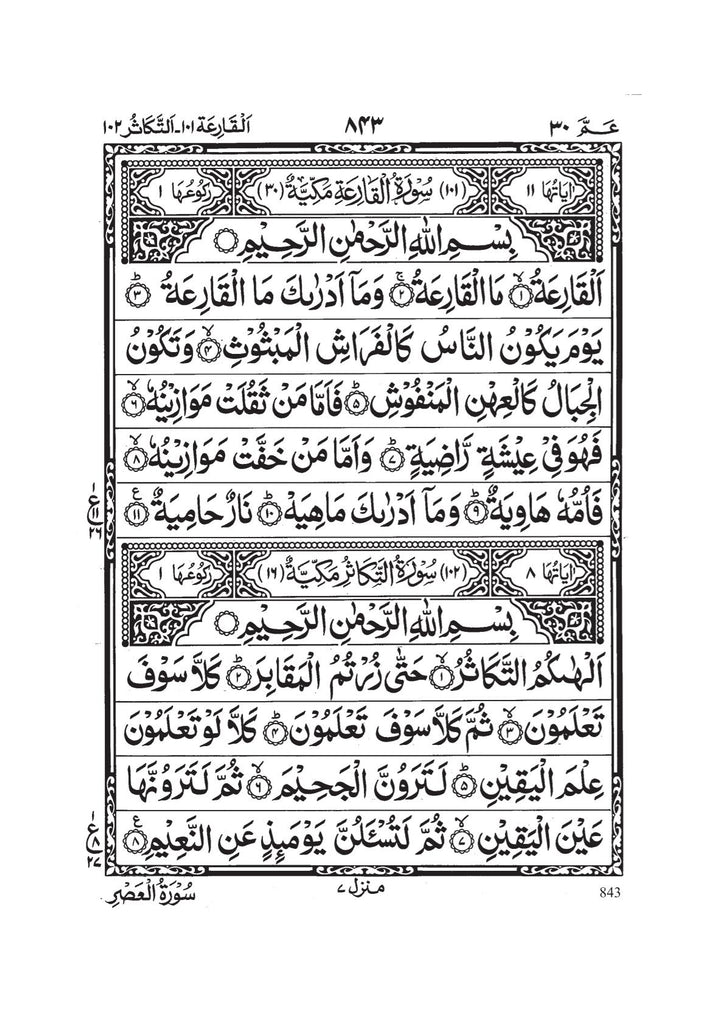 عــمّ ۳۰ ۸۴۳ اَلْقَارِعَة ۱۰۱-اَلتَّكَاثُر ۱۰۲
اٰيَاتُهَا ۱۱ (۱۰۱) سُوْرَةُ الْقَارِعَةِ مَكِّيَّةٌ (۳۰) رُكُوْعُهَا ۱
بِسْمِ اللّٰهِ الرَّحْمٰنِ الرَّحِيْمِ ۝
اَلْقَارِعَةُ ۙ﴿۱﴾ مَا الْقَارِعَةُ ۚ﴿۲﴾ وَمَاۤ اَدْرٰىكَ مَا الْقَارِعَةُ ؕ﴿۳﴾
يَوْمَ يَكُوْنُ النَّاسُ كَالْفَرَاشِ الْمَبْثُوْثِ ۙ﴿۴﴾ وَتَكُوْنُ
الْجِبَالُ كَالْعِهْنِ الْمَنْفُوْشِ ؕ﴿۵﴾ فَاَمَّا مَنْ ثَقُلَتْ مَوَازِيْنُهٗ ۙ﴿۶﴾
فَهُوَ فِيْ عِيْشَةٍ رَّاضِيَةٍ ؕ﴿۷﴾ وَاَمَّا مَنْ خَفَّتْ مَوَازِيْنُهٗ ۙ﴿۸﴾
فَاُمُّهٗ هَاوِيَةٌ ؕ﴿۹﴾ وَمَاۤ اَدْرٰىكَ مَاهِيَهْ ؕ﴿۱۰﴾ نَارٌ حَامِيَةٌ ﴿۱۱﴾
۱
ع
۱۱
۲۶
اٰيَاتُهَا ۸ (۱۰۲) سُوْرَةُ التَّكَاثُرِ مَكِّيَّةٌ (۱۶) رُكُوْعُهَا ۱
بِسْمِ اللّٰهِ الرَّحْمٰنِ الرَّحِيْمِ ۝
اَلْهٰىكُمُ التَّكَاثُرُ ۙ﴿۱﴾ حَتّٰى زُرْتُمُ الْمَقَابِرَ ؕ﴿۲﴾ كَلَّا سَوْفَ
تَعْلَمُوْنَ ۙ﴿۳﴾ ثُمَّ كَلَّا سَوْفَ تَعْلَمُوْنَ ؕ﴿۴﴾ كَلَّا لَوْ تَعْلَمُوْنَ
عِلْمَ الْيَقِيْنِ ؕ﴿۵﴾ لَتَرَوُنَّ الْجَحِيْمَ ۙ﴿۶﴾ ثُمَّ لَتَرَوُنَّهَا
عَيْنَ الْيَقِيْنِ ۙ﴿۷﴾ ثُمَّ لَتُسْـَٔلُنَّ يَوْمَئِذٍ عَنِ النَّعِيْمِ ﴿۸﴾
۱
ع
۸
۲۷
843 منزل ۷ سُوْرَةُ الْعَصْرِ